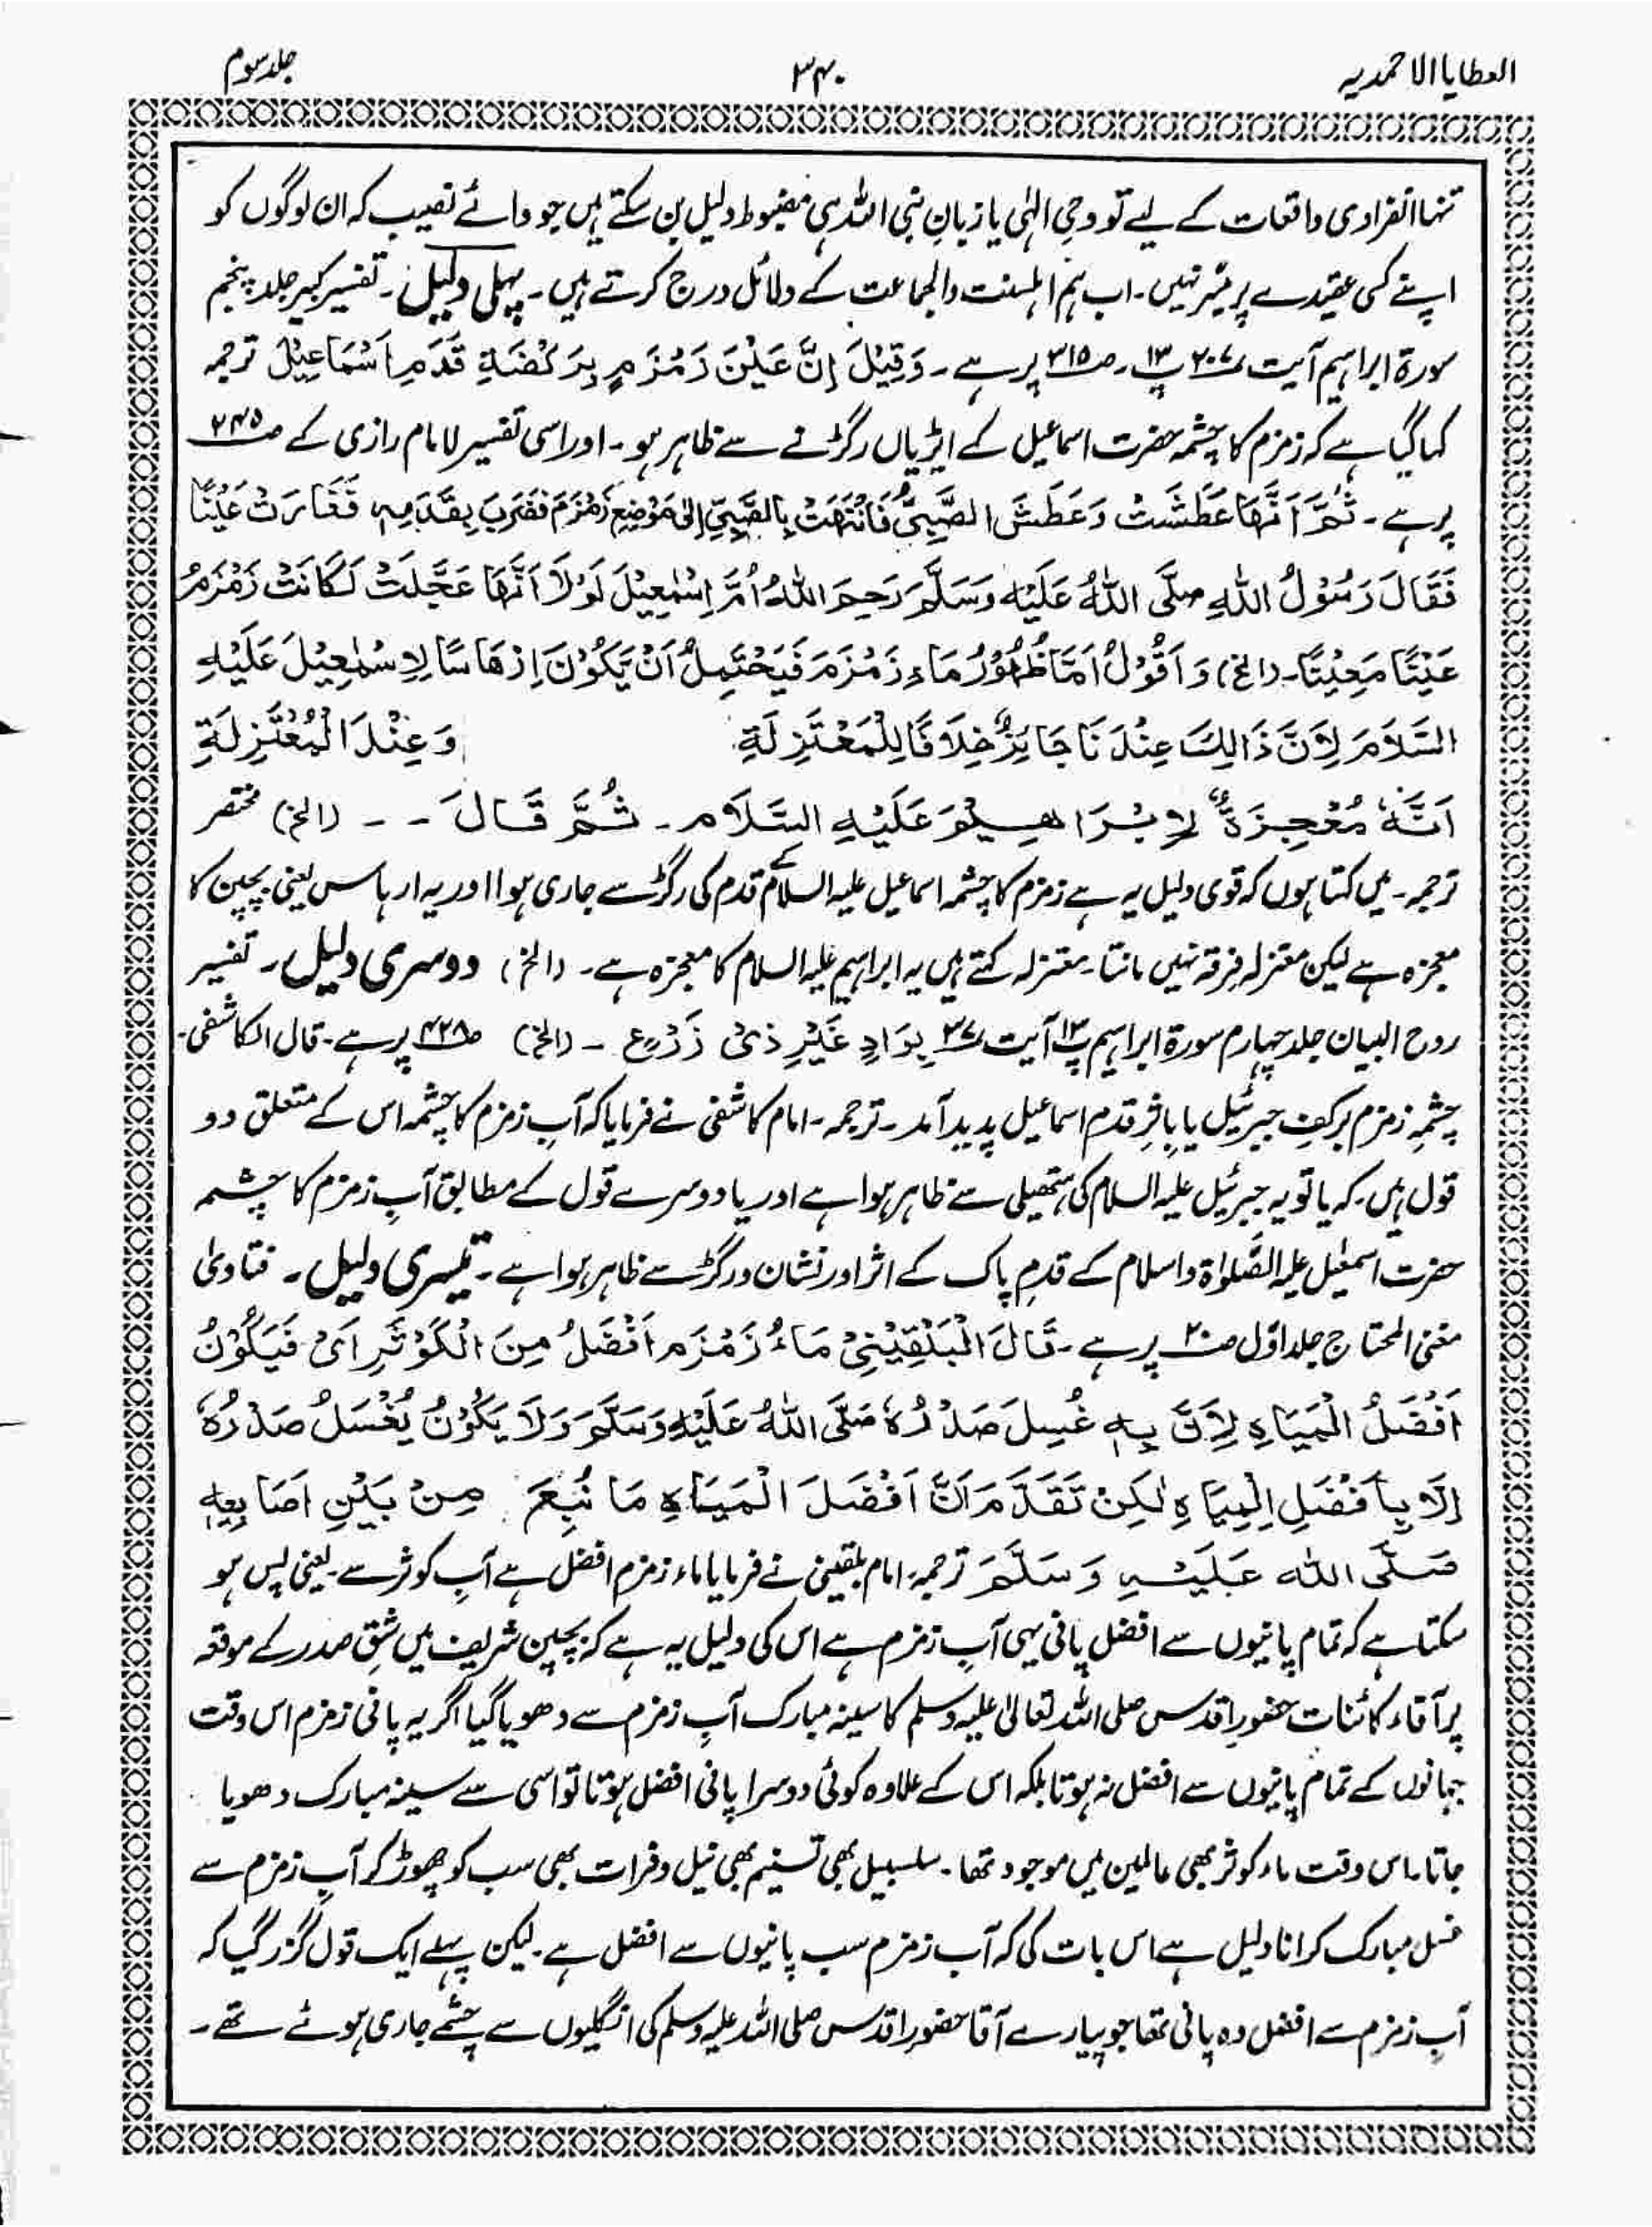 العطایا الاحمدیہ ۳۴۰ جلد سوم
تنہا انفرادی واقعات کے لیے تو وحیِ الہٰی یا زبانِ نبی اللہ ہی مضبوط دلیل بن سکتے ہیں جو وائے نصیب کہ ان لوگوں کو
اپنے کسی عقیدے پر میسّر نہیں۔ اب ہم اہلسنت والجماعت کے دلائل درج کرتے ہیں۔ پہلی دلیل۔ تفسیر کبیر جلد پنجم
سورۃ ابراہیم آیت پ۱۳۔ ص۳۱۵ پر ہے۔ وَقِیْلَ اِنَّ عَیْنَ زَمْزَمٍ بِرَکْضَۃِ قَدَمِ اَسْمَاعِیْلَ ترجمہ
کہا گیا ہے کہ زمزم کا چشمہ حضرت اسماعیل کے ایڑیاں رگڑنے سے ظاہر ہو۔ اور اسی تفسیر لا مام رازی کے ص۲۴۵
پر ہے۔ ثُمَّ اَنَّھَا عَطَشَتْ وَعَطَشَ الصَّبِیُّ فَانْتَھَتْ بِالصَّبِیِّ اِلیٰ مَوْضِعِ زَمْزَمَ فَضَرَبَ بِقَدَمِہٖ فَفَارَتْ عَیْنًا
فَقَالَ رَسُوْلُ اللہِ صَلَّی اللہُ عَلَیْہِ وَسَلَّمَ رَحِمَ اللہُ اُمَّ اِسْمٰعِیْلَ لَوْلَا اَنَّھَا عَجَّلَتْ لَکَانَتْ زَمْزَمُ
عَیْنًا مَعِیْنًا۔ (الخ) وَاَقُوْلُ اَمَّا ظُھُوْرُ مَاءِ زَمْزَمَ فَیَحْتَمِلُ اَنْ یَکُوْنَ اِرْھَاسًا لِاِسْمٰعِیْلَ عَلَیْہِ
السَّلَامَ لِاَنَّ ذَالِکَ عِنْدَنَا جَایِزٌ خِلَافًا لِلْمَعْتَزِلَۃِ وَعِنْدَ الْمُعْتَزِلَۃِ
اَنَّہٗ مُعْجِزَۃٌ لِاِبْرَاھِیْمَ عَلَیْہِ السَّلَام۔ ثُمَّ قَالَ۔ ۔ ۔ (الخ) مختصر
ترجمہ۔ میں کہتا ہوں کہ قوی دلیل یہ ہے زمزم کا چشمہ اسماعیل علیہ السلام کے قدم کی رگڑ سے جاری ہوا اور یہ ارہاس یعنی بچپن کا
معجزہ ہے لیکن معتزلہ فرقہ نہیں مانتا۔ معتزلہ کہتے ہیں یہ ابراہیم علیہ السلام کا معجزہ ہے۔ (الخ) دوسری دلیل۔ تفسیر
روح البیان جلد چہارم سورۃ ابراہیم پ۱۳ آیت ۳۷ بِوَادٍ غَیْرِ ذِیْ زَرْعٍ ۔ (الخ) ص۴۲۸ پر ہے۔ قال الکاشفی۔
چشمۂ زمزم بر کفِ جبرئیل یا باثرِ قدم اسماعیل پدید آمد۔ ترجمہ۔ امام کاشفی نے فرمایا کہ آب زمزم کا چشمہ اس کے متعلق دو
قول ہیں۔ کہ یا تو یہ جبرئیل علیہ السلام کی ہتھیلی سے ظاہر ہوا ہے اور یا دوسرے قول کے مطابق آبِ زمزم کا چشمہ
حضرت اسمٰعیل علیہ الصَّلواۃ واسلام کے قدمِ پاک کے اثر اور نشان و رگڑ سے ظاہر ہوا ہے۔ تیسری دلیل۔ فتاویٰ
مغنی المحتاج جلد اوّل ص۲۰ پر ہے۔ قَالَ الْبَلْقِیْنِیْ مَاءُ زَمْزَم اَفْضَلُ مِنَ الْکَوْثَرِ اَیْ فَیَکُوْنُ
اَفْضَلُ الْمَیَاہِ لِاَنَّ بِہٖ غُسِلَ صَدْرُہٗ صَلَّی اللہُ عَلَیْہِ وَسَلَّمَ وَلَا یَکُوْنُ یُغْسَلُ صَدْرُہٗ
اِلَّا بِاَفْضَلِ الْمِیَاہِ لٰکِنْ تَقَدَّمَ اَنَّ اَفْضَلَ الْمَیَاہِ مَا نُبِعَ مِنْ بَیْنِ اَصَابِعِہٖ
صَلَّی اللہ عَلَیْہِ وَسَلَّمَ ترجمہ: امام بلقینی نے فرمایا ماء زمزم افضل ہے آبِ کوثر سے۔ یعنی پس ہو
سکتا ہے کہ تمام پانیوں سے افضل پانی یہی آبِ زمزم ہے اس کی دلیل یہ ہے کہ بچپن شریف میں شقِ صدر کے موقعہ
پر آقاء کائنات حضورِ اقدس صلی اللہ تعالیٰ علیہ وسلم کا سینہ مبارک آبِ زمزم سے دھویا گیا اگر یہ پانی زمزم اس وقت
جہانوں کے تمام پانیوں سے افضل نہ ہوتا بلکہ اس کے علاوہ کوئی دوسرا پانی افضل ہوتا تو اسی سے سینہ مبارک دھویا
جاتا۔ اس وقت ماء کوثر بھی عالمین میں موجود تھا۔ سلسبیل بھی تسنیم بھی نیل و فرات بھی سب کو چھوڑ کر آبِ زمزم سے
غسل مبارک کرانا دلیل ہے اس بات کی کہ آب زمزم سب پانیوں سے افضل ہے۔ لیکن پہلے ایک قول گزر گیا کہ
آبِ زمزم سے افضل وہ پانی تھا جو پیارے آقا حضور اقدس صلی اللہ علیہ وسلم کی انگلیوں سے چشمے جاری ہوئے تھے۔